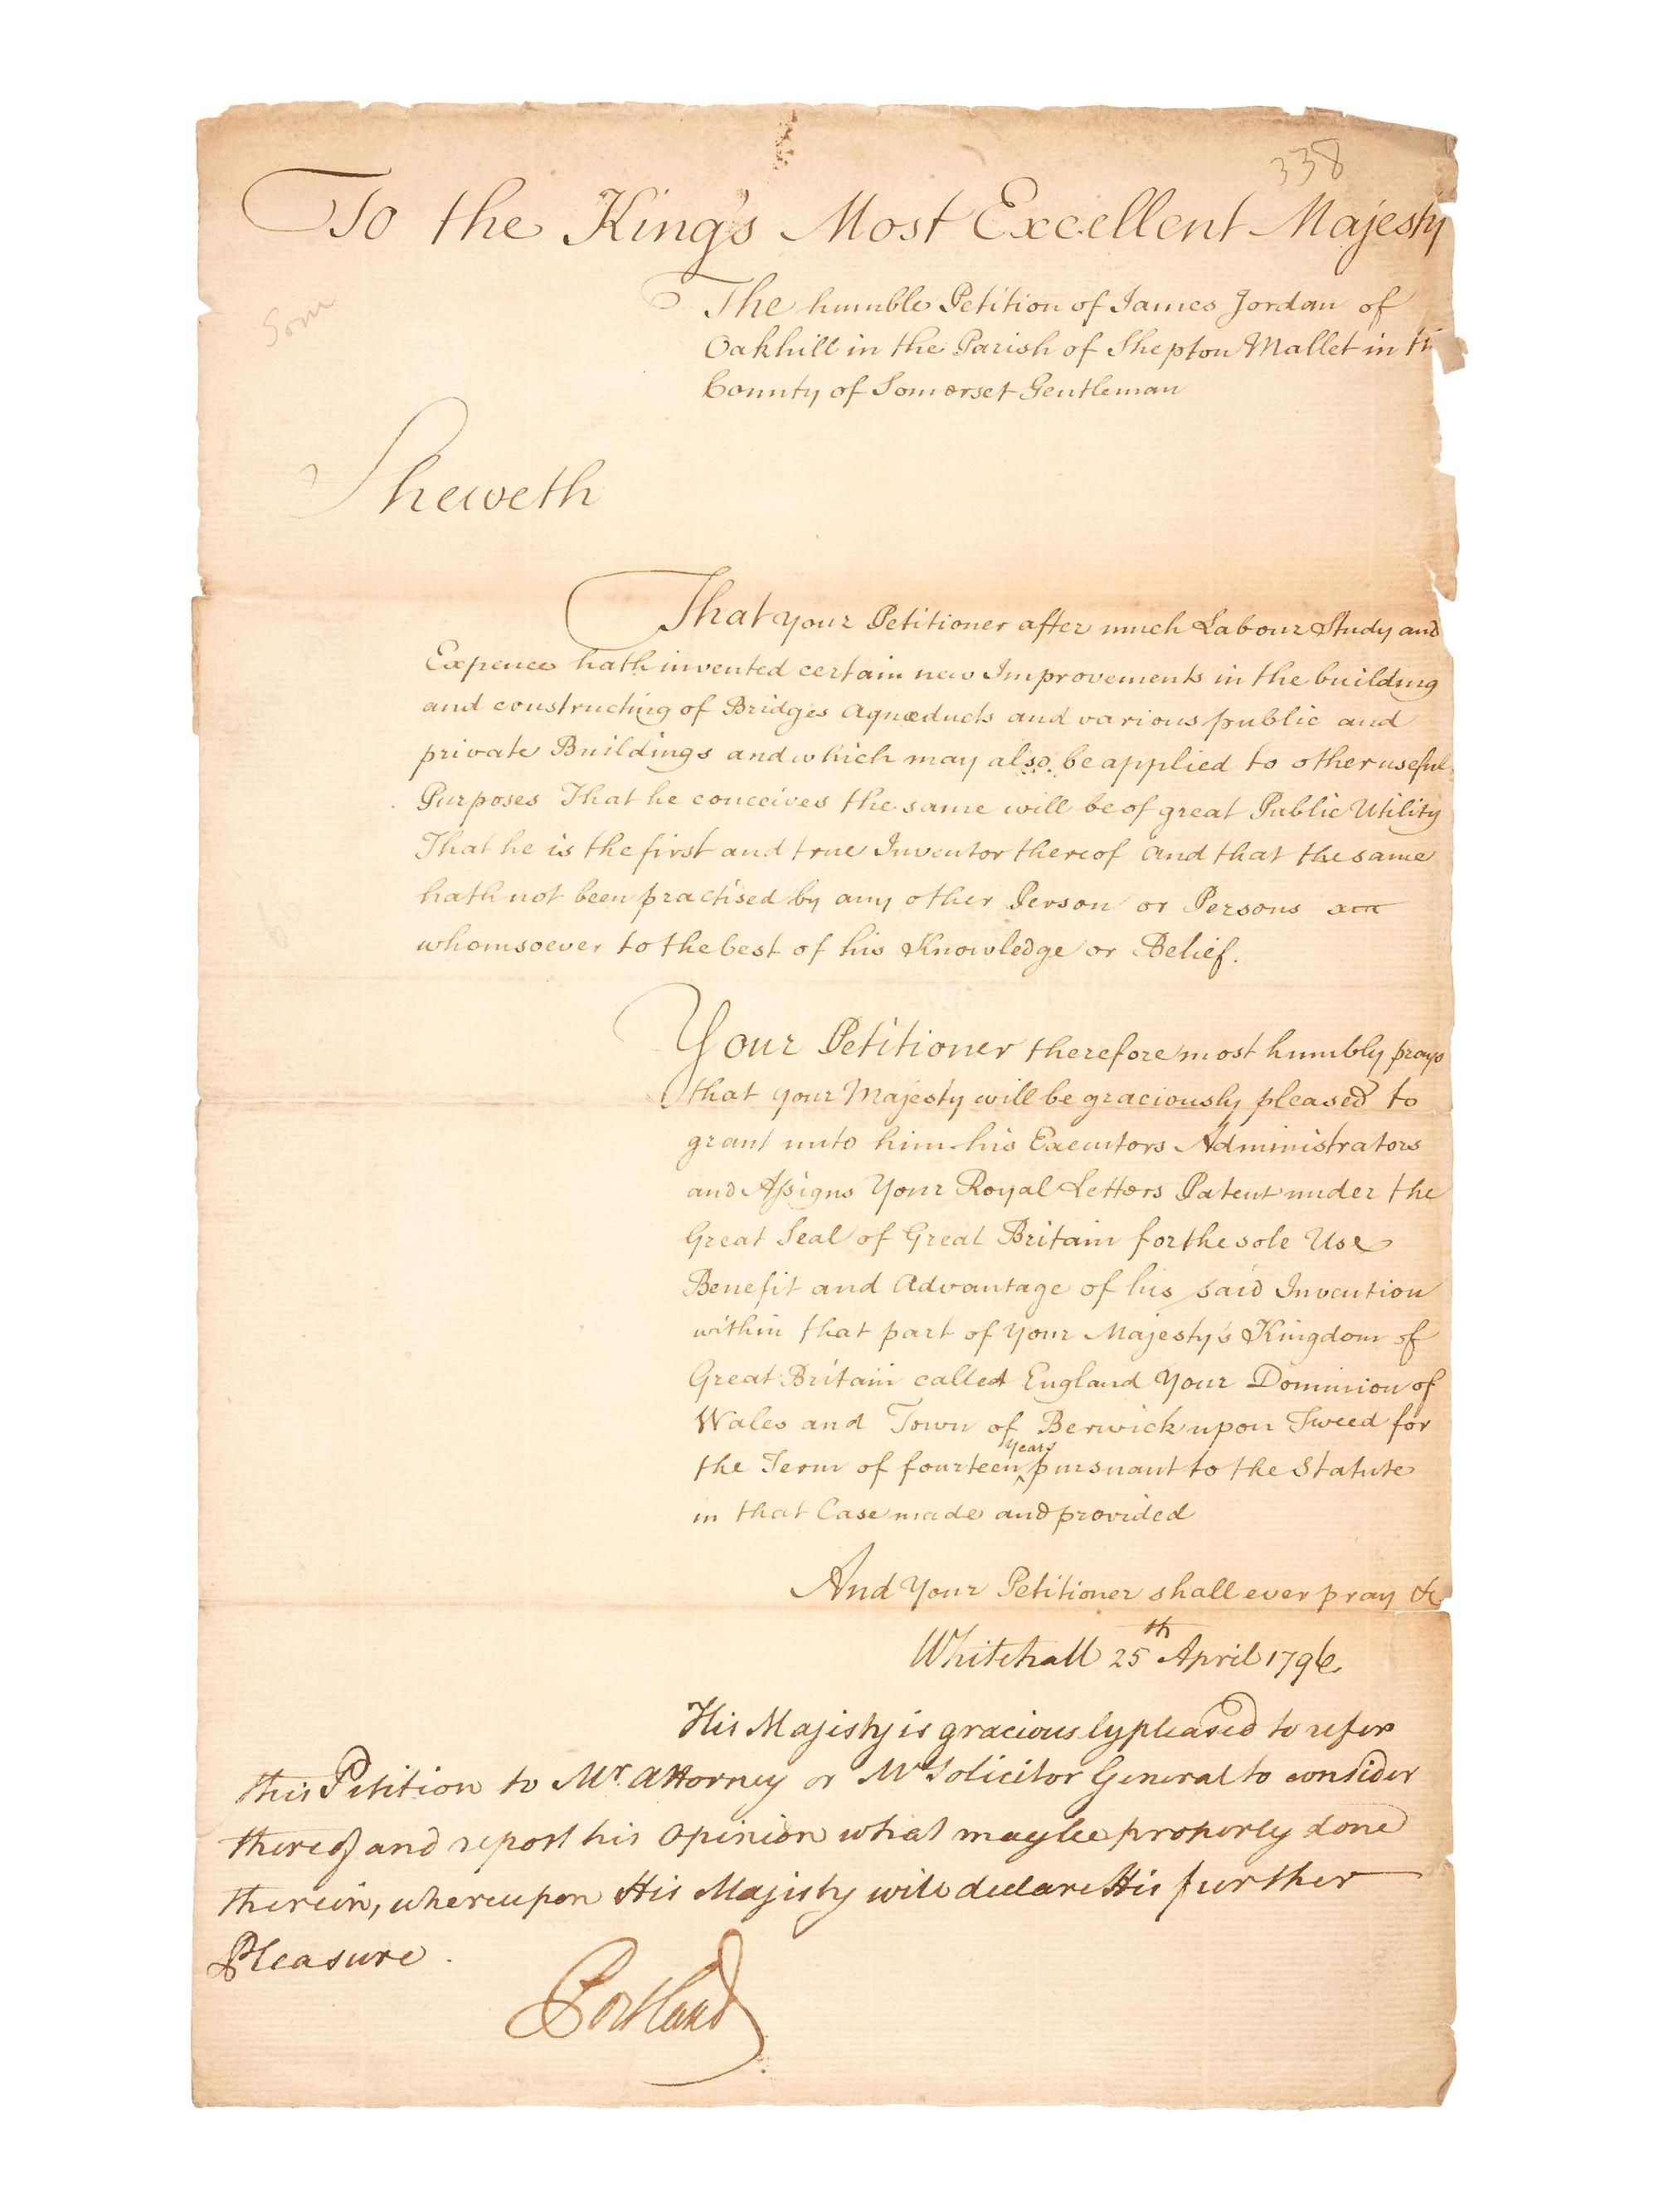 338
To the King's Most Excellent Majesty
Som
The humble Petition of James Jordan of
Oakhill in the Parish of Shepton Mallet in th
County of Somerset Gentleman
Sheweth
That your Petitioner after much Labour Study and
Expence hath invented certain new Improvements in the building
and constructing of Bridges Aquæducts and various public and
private Buildings and which may also be applied to other useful
Purposes That he conceives the same will be of great Public Utility
That he is the first and true Inventor thereof and that the same
hath not been practised by any other Person or Persons
whomsoever to the best of his Knowledge or Belief.
Your Petitioner therefore most humbly prays
that your Majesty will be graciously pleased to
grant unto him his Executors Administrators
and Assigns Your Royal Letters Patent under the
Great Seal of Great Britain for the sole Use
Benefit and Advantage of his said Invention
within that part of Your Majesty's Kingdom of
Great Britain called England Your Dominion of
Wales and Town of Berwick upon Tweed for
the Term of fourteen years pursuant to the Statute
in that Case made and provided
And Your Petitioner shall ever pray &c
Whitehall 25th April 1796.
His Majesty is graciously pleased to refer
this Petition to Mr. Attorney or Mr Solicitor General to consider
thereof and report his Opinion what may be properly done
therein, whereupon His Majesty will declare His further
Pleasure.
Portland